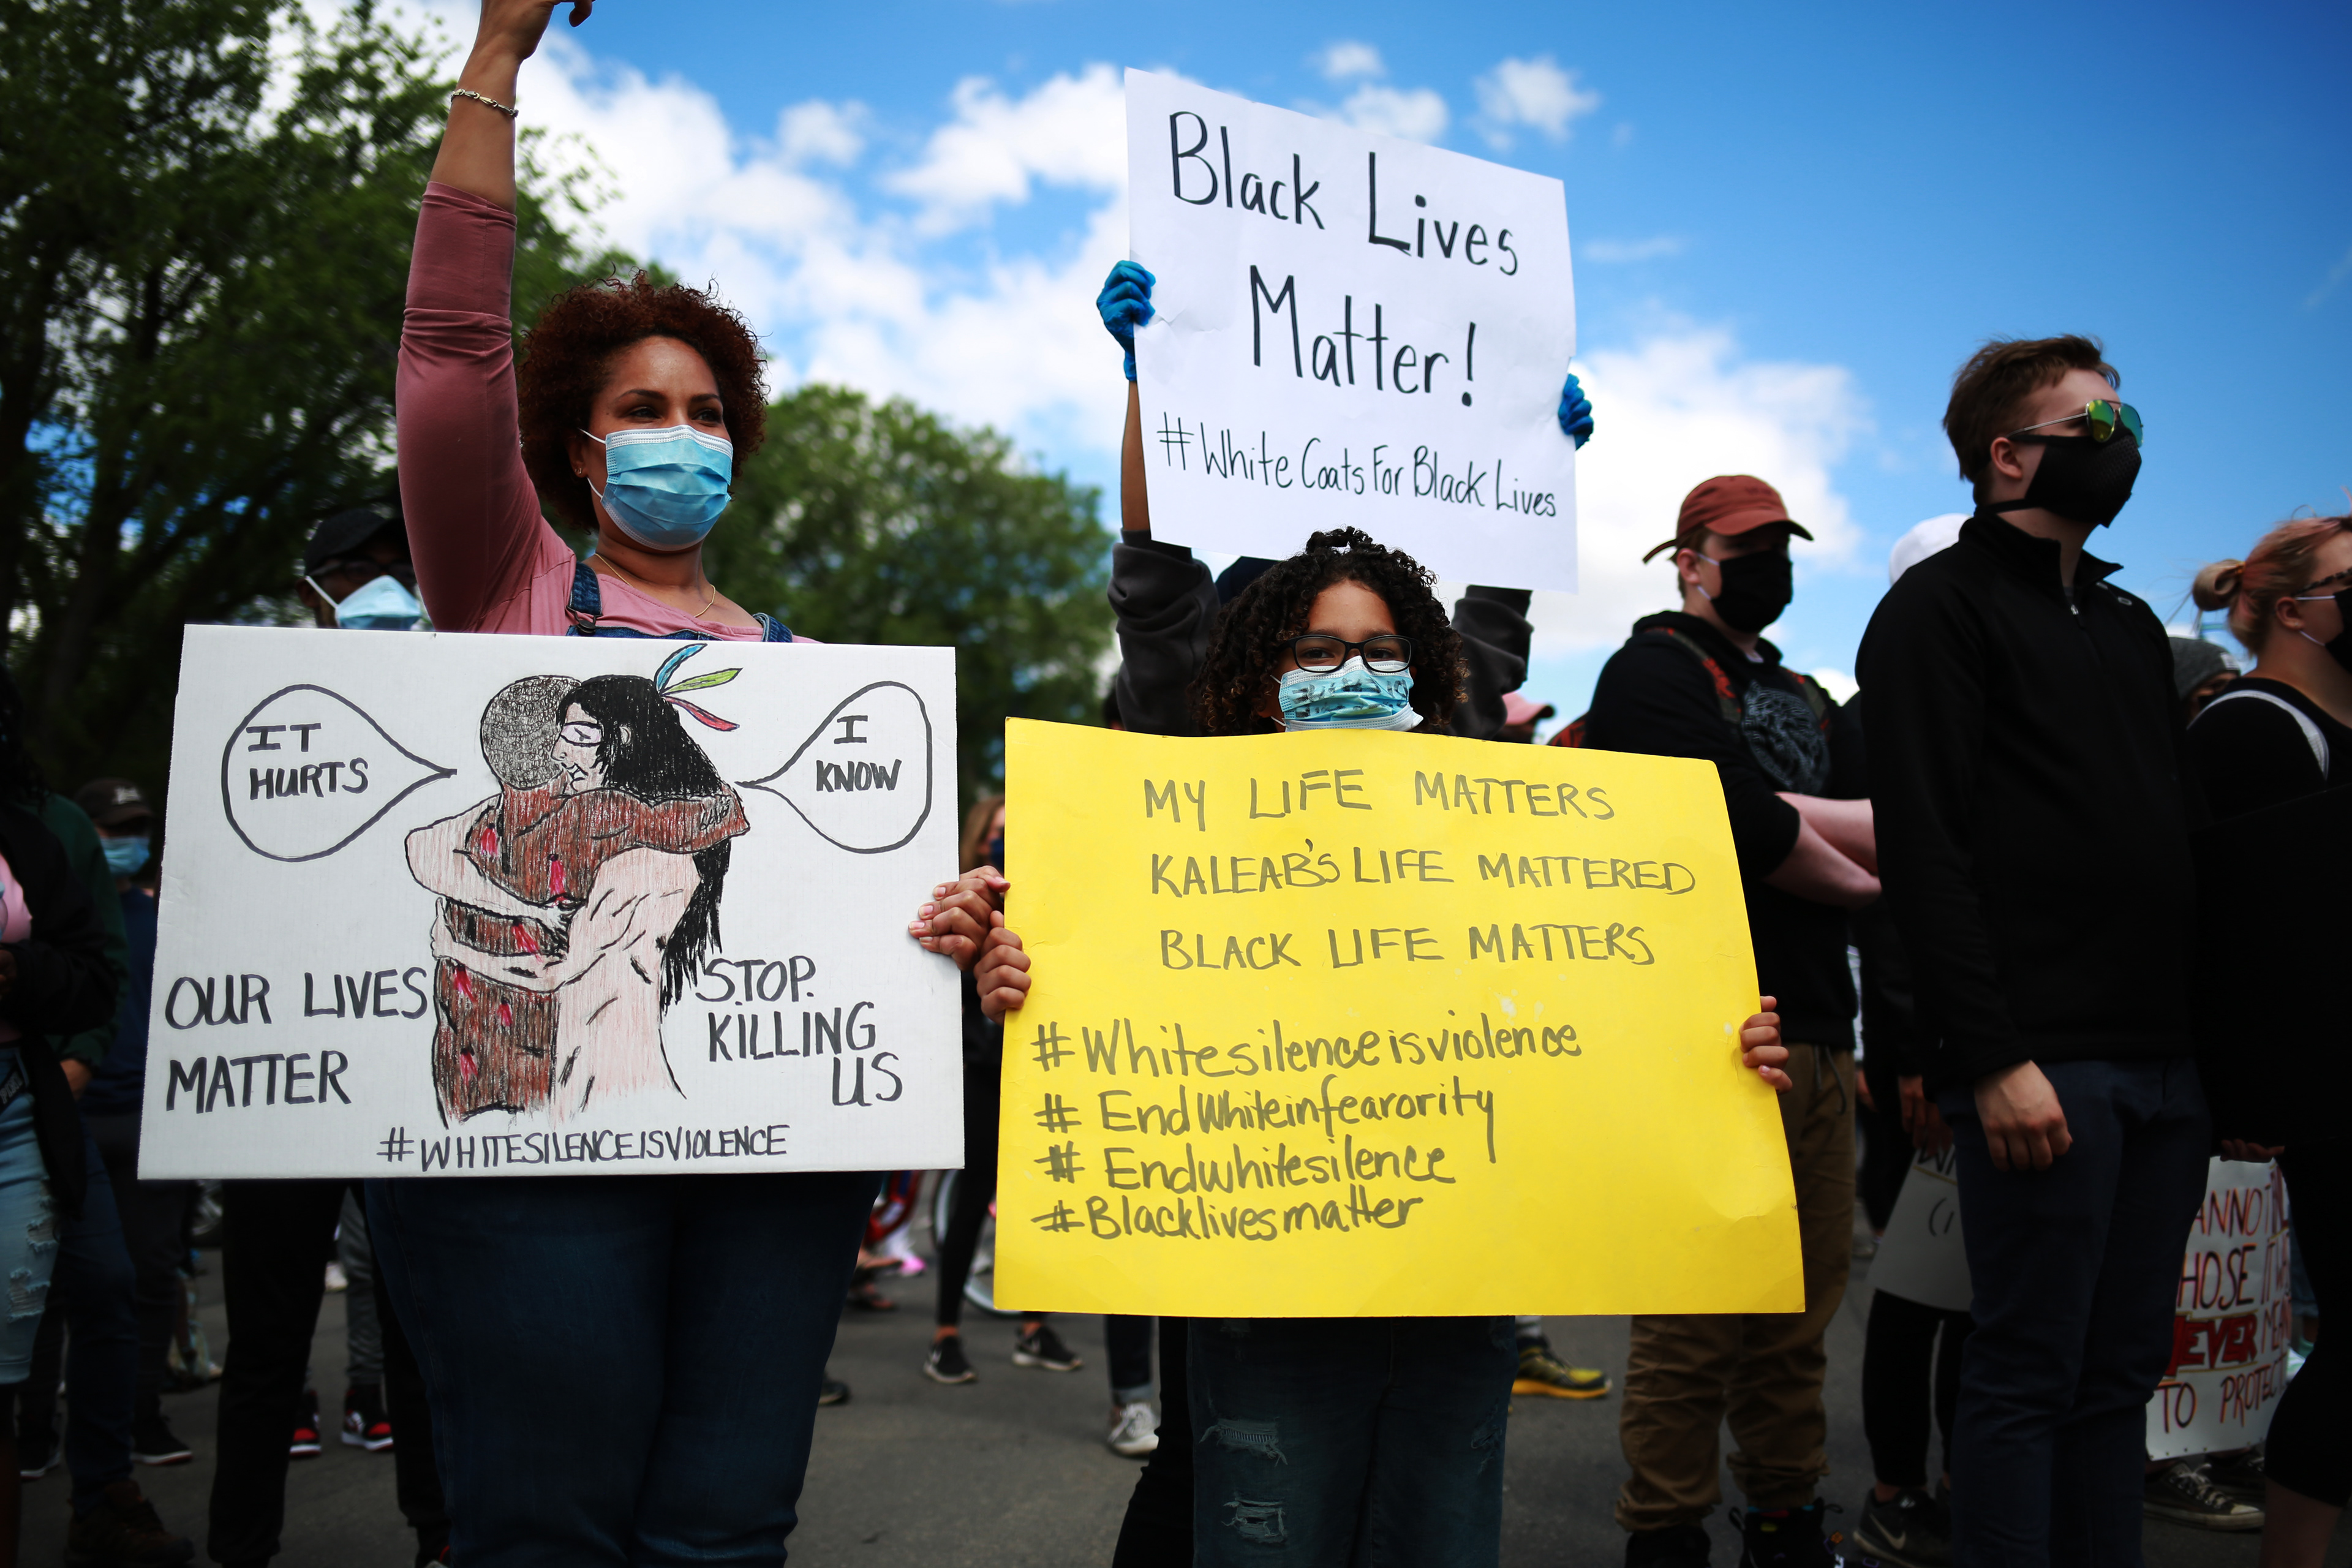 Black Lives
Matter!
#White Coats For Black Lives
IT
HURTS
I
KNOW
OUR LIVES
MATTER
STOP.
KILLING
US
#WHITESILENCEISVIOLENCE
MY LIFE MATTERS
KALEAB'S LIFE MATTERED
BLACK LIFE MATTERS
#Whitesilenceisviolence
# EndWhiteinfearority
# Endwhitesilence
#Blacklivesmatter
TO